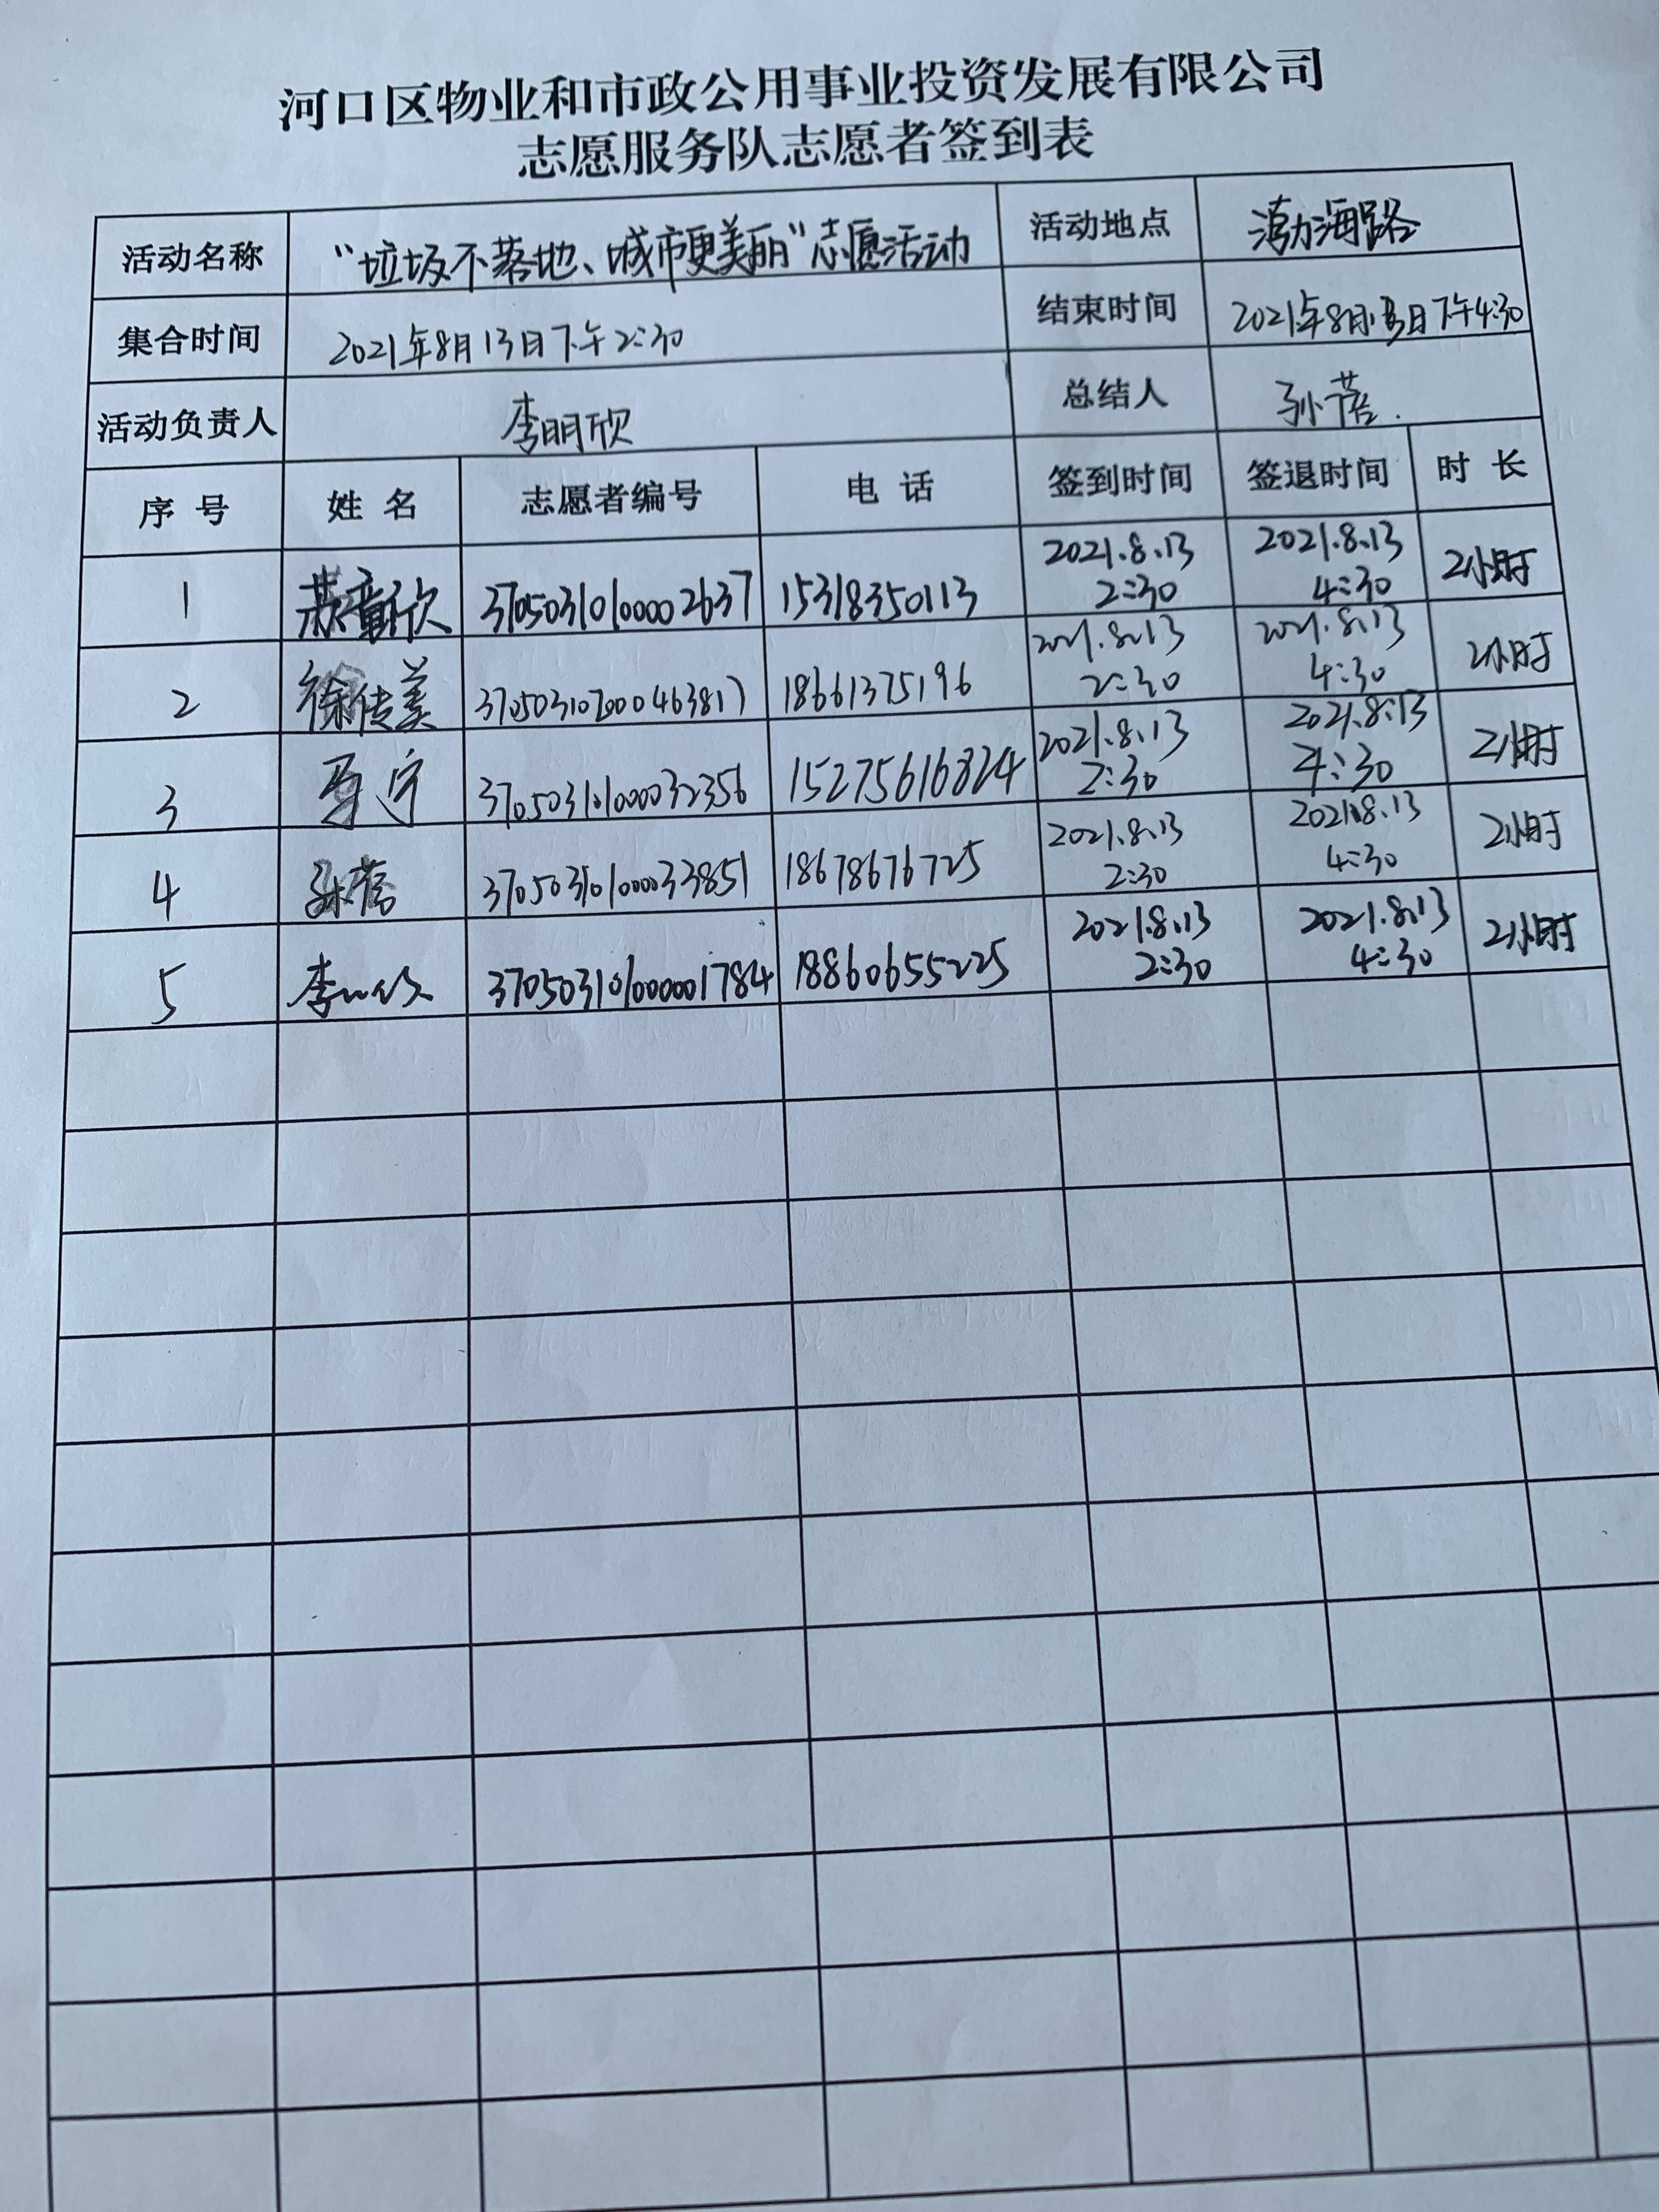 河口区物业和市政公用事业投资发展有限公司
志愿服务队志愿者签到表
活动名称 “垃圾不落地、城市更美丽”志愿活动 活动地点 渤海路
集合时间 2021年8月13日下午2:30 结束时间 2021年8月13日下午4:30
活动负责人 李明欣 总结人 孙蓓
序号 姓名 志愿者编号 电话 签到时间 签退时间 时长
1 370503101000002637 15318350113 2021.8.13 2:30 2021.8.13 4:30 2小时
2 徐传美 18661375196 2021.8.13 2:30 2021.8.13 4:30 2小时
3 宁 370503101000032356 15275616824 2021.8.13 2:30 2021.8.13 4:30 2小时
4 孙蓓 370503101000033851 18678676725 2021.8.13 2:30 2021.8.13 4:30 2小时
5 李 370503101000001784 18860655225 2021.8.13 2:30 2021.8.13 4:30 2小时